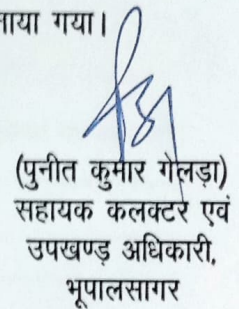 गया।
(पुनीत कुमार गेलड़ा)
सहायक कलक्टर एवं
उपखण्ड अधिकारी,
भूपालसागर